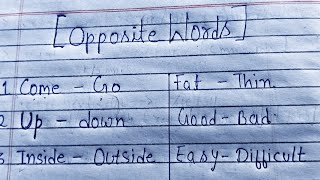 [Opposite Words]
1 Come - Go Fat - Thin
2 Up - down Good - Bad
3 Inside - Outside Easy - Difficult